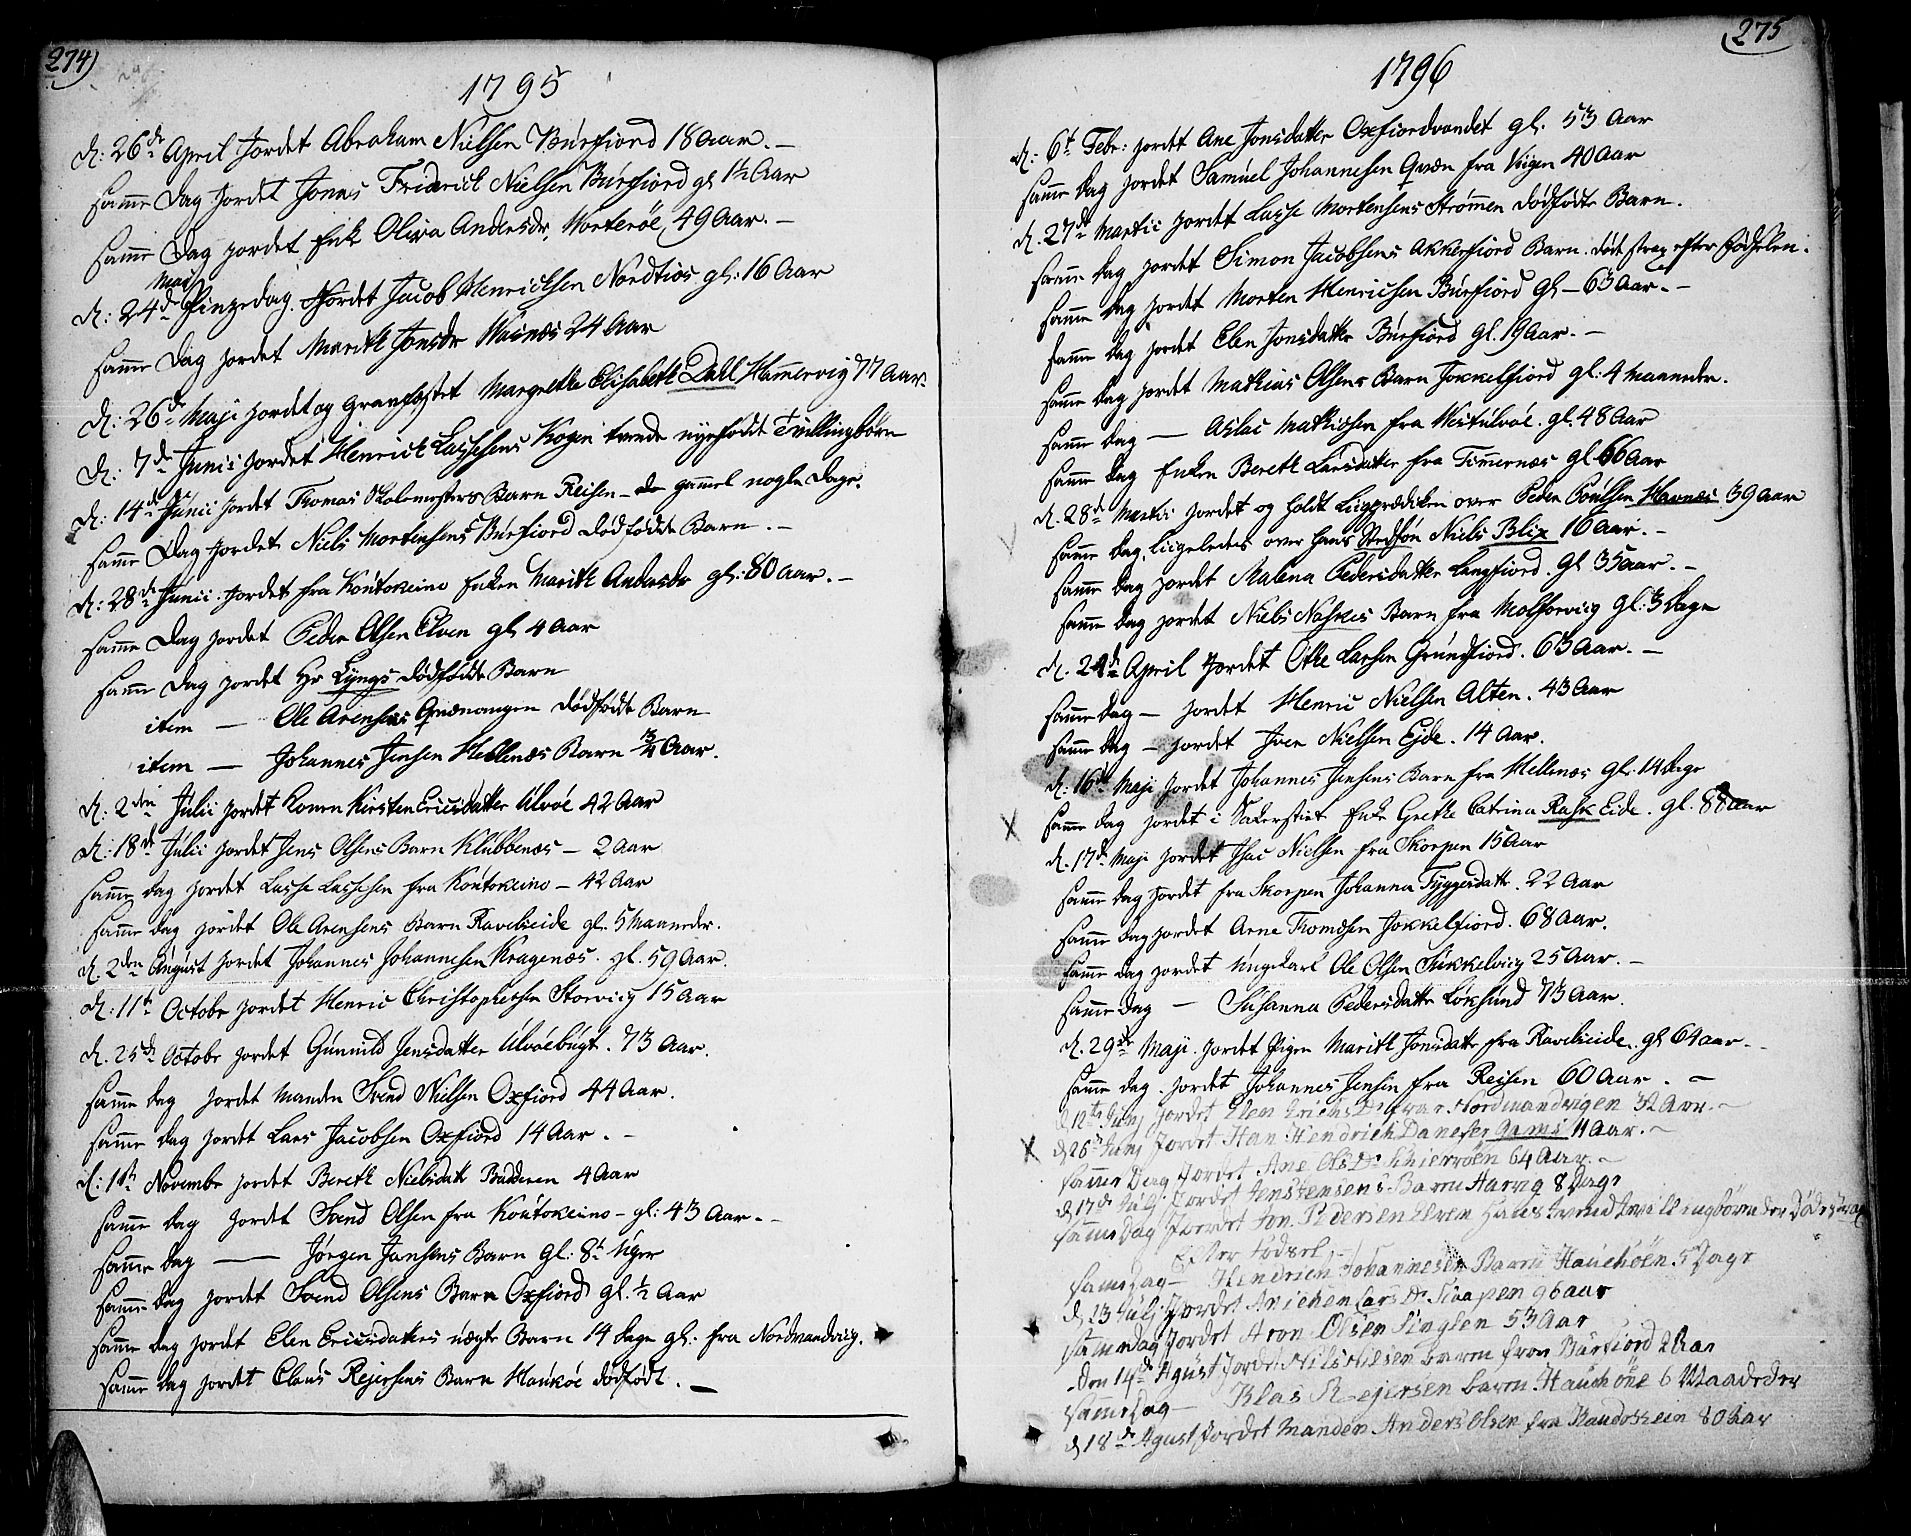 274)
1795
d: 26de April Jordet Abraham Nielsen Burfiord 18 Aar.
Samme Dag Jordet Jonas Friderick Nielsen Burfiord gl. 1½ Aar
Samme Dag jordet Enke Oliva Andersdr, Worterøe, 49 Aar.
Maji
d: 24de Pinzedag. Jordet Jacob Henrichsen Nordtios gl: 16 Aar
Samme Dag jordet Marith Jonsdr Wasnæs 24 Aar
d: 26de Maji jordet og Margrethe Elisabeth Dahl Hamervig 77 Aar.
d: 7de Junii jordet Henrick Lassesens Kogen tvende nyefødde Tvillingbørn
d: 14de Junii jordet Thomas Skolemesters Barn Reisen gammel nogle Dage.
Samme Dag jordet Niels Mortensens Burfiord dødfødte Barn.
d: 28de Junii jordet fra Koutokeino Enken Marith Andersdr gl: 80 Aar.
Samme Dag jordet Peder Olsen Elven gl 4 Aar
Samme Dag jordet Hr Lyngs dødfødte Barn
item — Ole Arensens Qvænangen dødfødte Barn
item — Johannes Jensen Mellenæs Barn Aar.
d: 2den Julii jordet Konen Kirsten Ericsdatter Ulvøe 42 Aar
d: 18de Julii jordet Jens Olsens Barn Klubbenæs — 2 Aar
Samme dag jordet Lasse Lassesen fra Koutokeino — 42 Aar
Samme dag jordet Ole Arensens Barn Ravelseide gl. 5 Maaneder.
d. 2den August jordet Johannes Johannesen Kragenæs. gl. 59 Aar.
d: 11te Octobr jordet Henric Christophersen Storviig 15 Aar
d. 25de Octobr jordet Gunnild Jensdatter Ulvøebugt. 73 Aar.
Samme dag jordet Manden Svend Nielsen Oxfiord 44 Aar.
Samme dag jordet Lars Jacobsen Oxfiord 14 Aar.
d: 1ste Novembr jordet Bereth Nielsdatt Badderen 4 Aar
Samme dag jordet Svend Olsen fra Koutokeino — gl: 43 Aar.
Samme dag — Jørgen Jansens Barn gl: 8te Uger
Samme dag jordet Svend Olsens Barn Oxfiord gl. ½ Aar
Samme dag jordet Elen Ericsdatters uægte Barn 14 dage gl: fra Nordmandviig.
Samme dag jordet Claus Rejersens Barn Haukøe dødfødt.
(275
1796
d: 6te Febr: jordet Ane Jonsdatter Oxfiordvandet gl. 53 Aar
Samme dag jordet Samuel Johannesen Qvæn fra Viigen 40 Aar
d. 27de Martii jordet Lasse Mortensens Strømmen dødfødte Barn.
Samme dag jordet Simon Jacobsens Akkerfiord Barn. død strax efter Fødselen.
Samme dag jordet Morten Henricsen Burfiord gl — 63 Aar.
Samme dag jordet Elen Jonsdatter Burfiord gl. 19 Aar.
Samme dag jordet Mathias Olsens Barn Jokkelfiord gl: 4 Maaneder.
Samme dag — Aslac Mathiesen fra Westulvøe. gl. 48 Aar
Samme dag Enken Bereth Larsdatter fra Timmernæs gl 66 Aar
d. 28de Martii jordet og holdt Liigprædiken over Peder Povelsen Havnæs 39 Aar
Samme dag, Liigeledes over hans Stedsøn Niels Blix 16 Aar.
Samme dag jordet Malena Pedersdatter Langfiord. gl 35 Aar.
Samme dag jordet Niels Naskes Barn fra Molsorviig gl: 3 Dage
d. 24de April jordet Othe Larsen Grundfiord. 63 Aar.
Samme dag — jordet Henric Nielsen Alten. 43 Aar
Samme dag — jordet Iver Nielsen Ejde. 14 Aar.
d: 16de Maji jordet Johannes Jensens Barn fra Mellenæs gl: 14 dage
Samme dag jordet i Enke Grethe Catrina Rask Eide. gl. Aar
d. 17de Maji jordet Isac Nielsen fra Skorpen 15 Aar
Samme dag jordet fra Skorpen Johanna Tyggesdatt. 22 Aar
Samme dag jordet Arne Thomesen Jokkelfiord. 68 Aar.
Samme dag jordet Ungekarl Ole Olsen Sukkelviig 25 Aar.
Samme dag — Susanna Pedersdatter Løksund 73 Aar.
d. 29de Maji. jordet Pigen Marith Jonsdatter fra Ravelseide. gl 64 aar.
Samme dag. jordet Johannes Jensen fra Reisen 60 Aar.
d 12te Junj jordet Elen Erichs Dr fra Nordmandvigen 32 Aar.
d 26de Junj jordet Han Hendrich Danefer Gams 11 Aar.
samme Dag jordet Ane Ols Dr Skierrøen 64 Aar.
d 17de Julj jordet Jens Jensens Barn Harvig 8 Dage
samme Dag jordet Jon Pedersen Elven Hans tvende tvillingbørn der Døde strax
Efter Fødsel
samme Dag — Hendrich Johannesen Barn Hauchøen. 5 Dage
d 23 Julj jordet Anichen Lars Dr Skaapen 96 aar
samme dag jordet Aron Olsen Singlen 53 Aar
den 14de Agust jordet Nils Nilsen barn fraa Burfiord 2 Aar
samme Dag — Klas Rejersen barn Hauchøne 6 Maaneder
d 18de Agust jordet Manden Anders Olsen fra Kaudokein 80 Aar